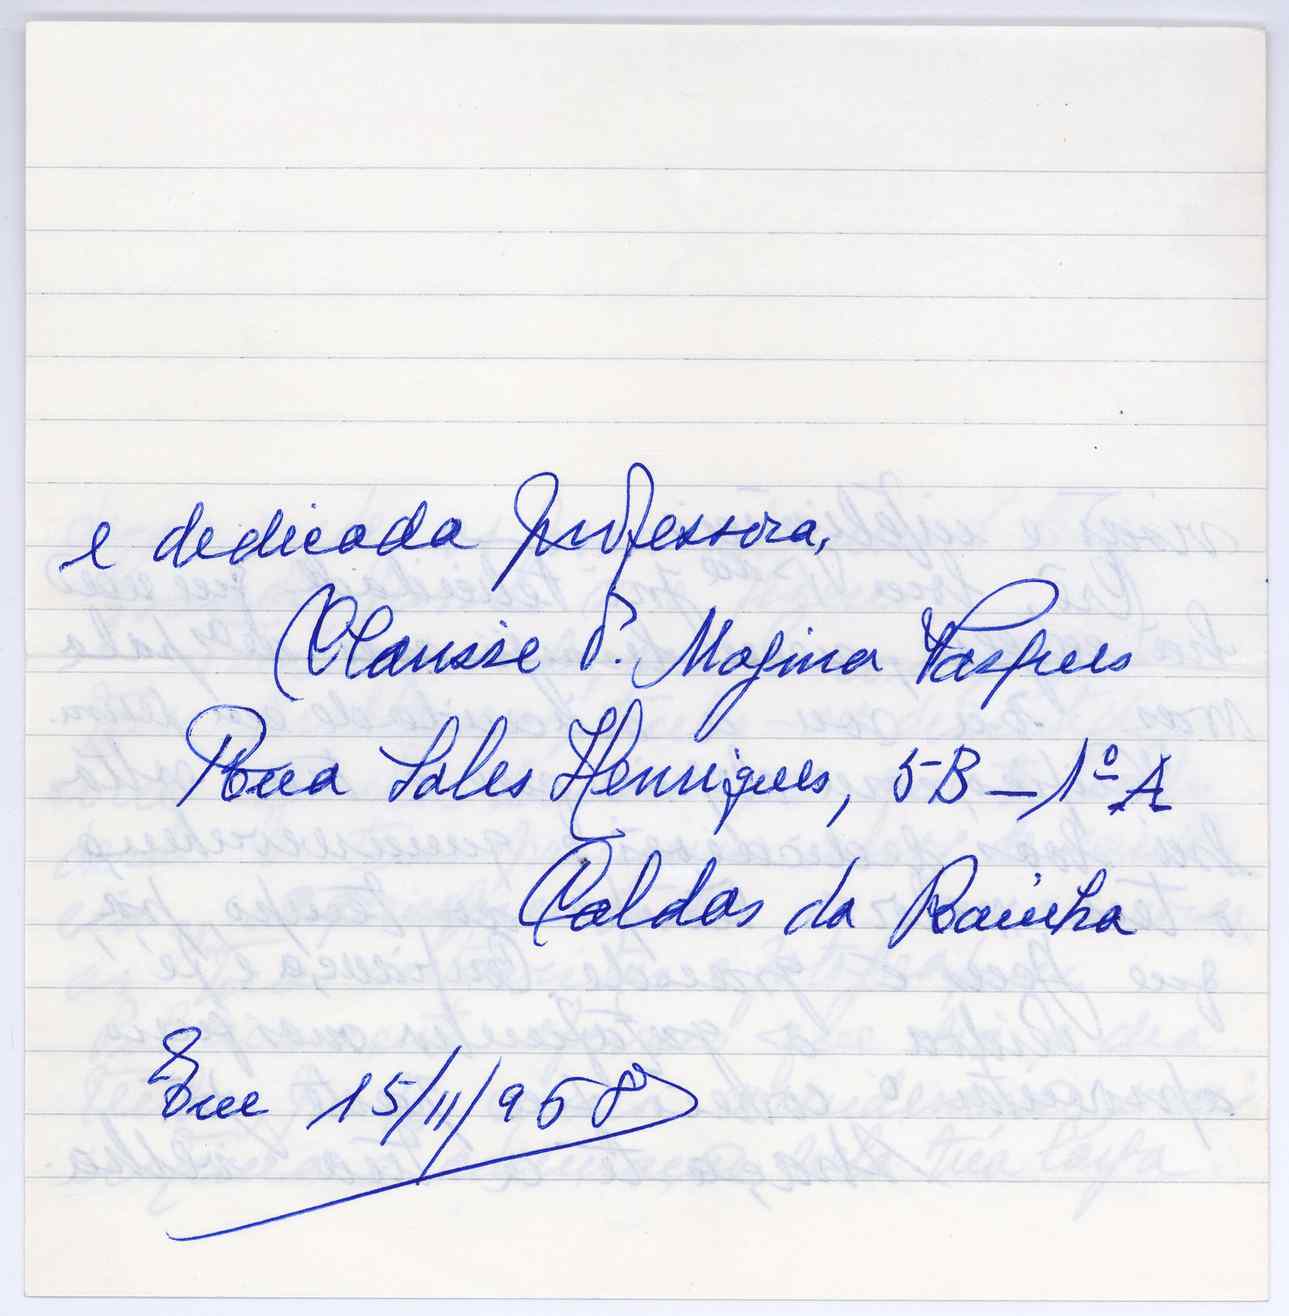 e dedicada professora,
Clarisse P. Mogina Vasques
Rua Sales Henriques, 5-B - 1º A
Caldas da Rainha
Em 15/11/968